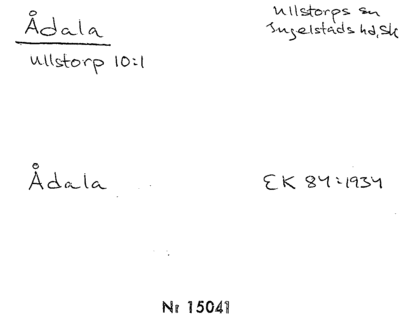 Ådala
Ullstorp 10:1
Ullstorps sn
Ingelstads hd, Sk
Ådala
EK 84:1934
Nr 15041